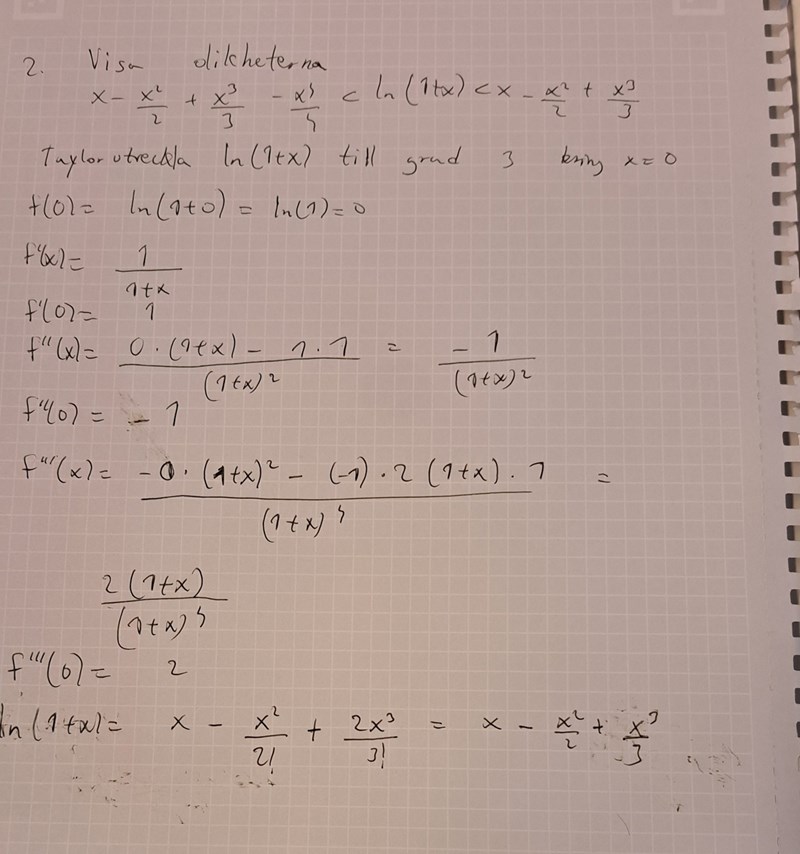 2. Visa olikheterna
x - x²/2 + x³/3 - x⁴/4 < ln(1+x) < x - x²/2 + x³/3
Taylorutveckla ln(1+x) till grad 3 kring x=0
f(0) = ln(1+0) = ln(1) = 0
f'(x) = 1/(1+x)
f'(0) = 1
f''(x) = (0·(1+x) - 1·1)/(1+x)² = -1/(1+x)²
f''(0) = -1
f'''(x) = (-0·(1+x)² - (-1)·2(1+x)·1)/(1+x)⁴ =
2(1+x)/(1+x)⁴
f'''(0) = 2
ln(1+x) = x - x²/2! + 2x³/3! = x - x²/2 + x³/3